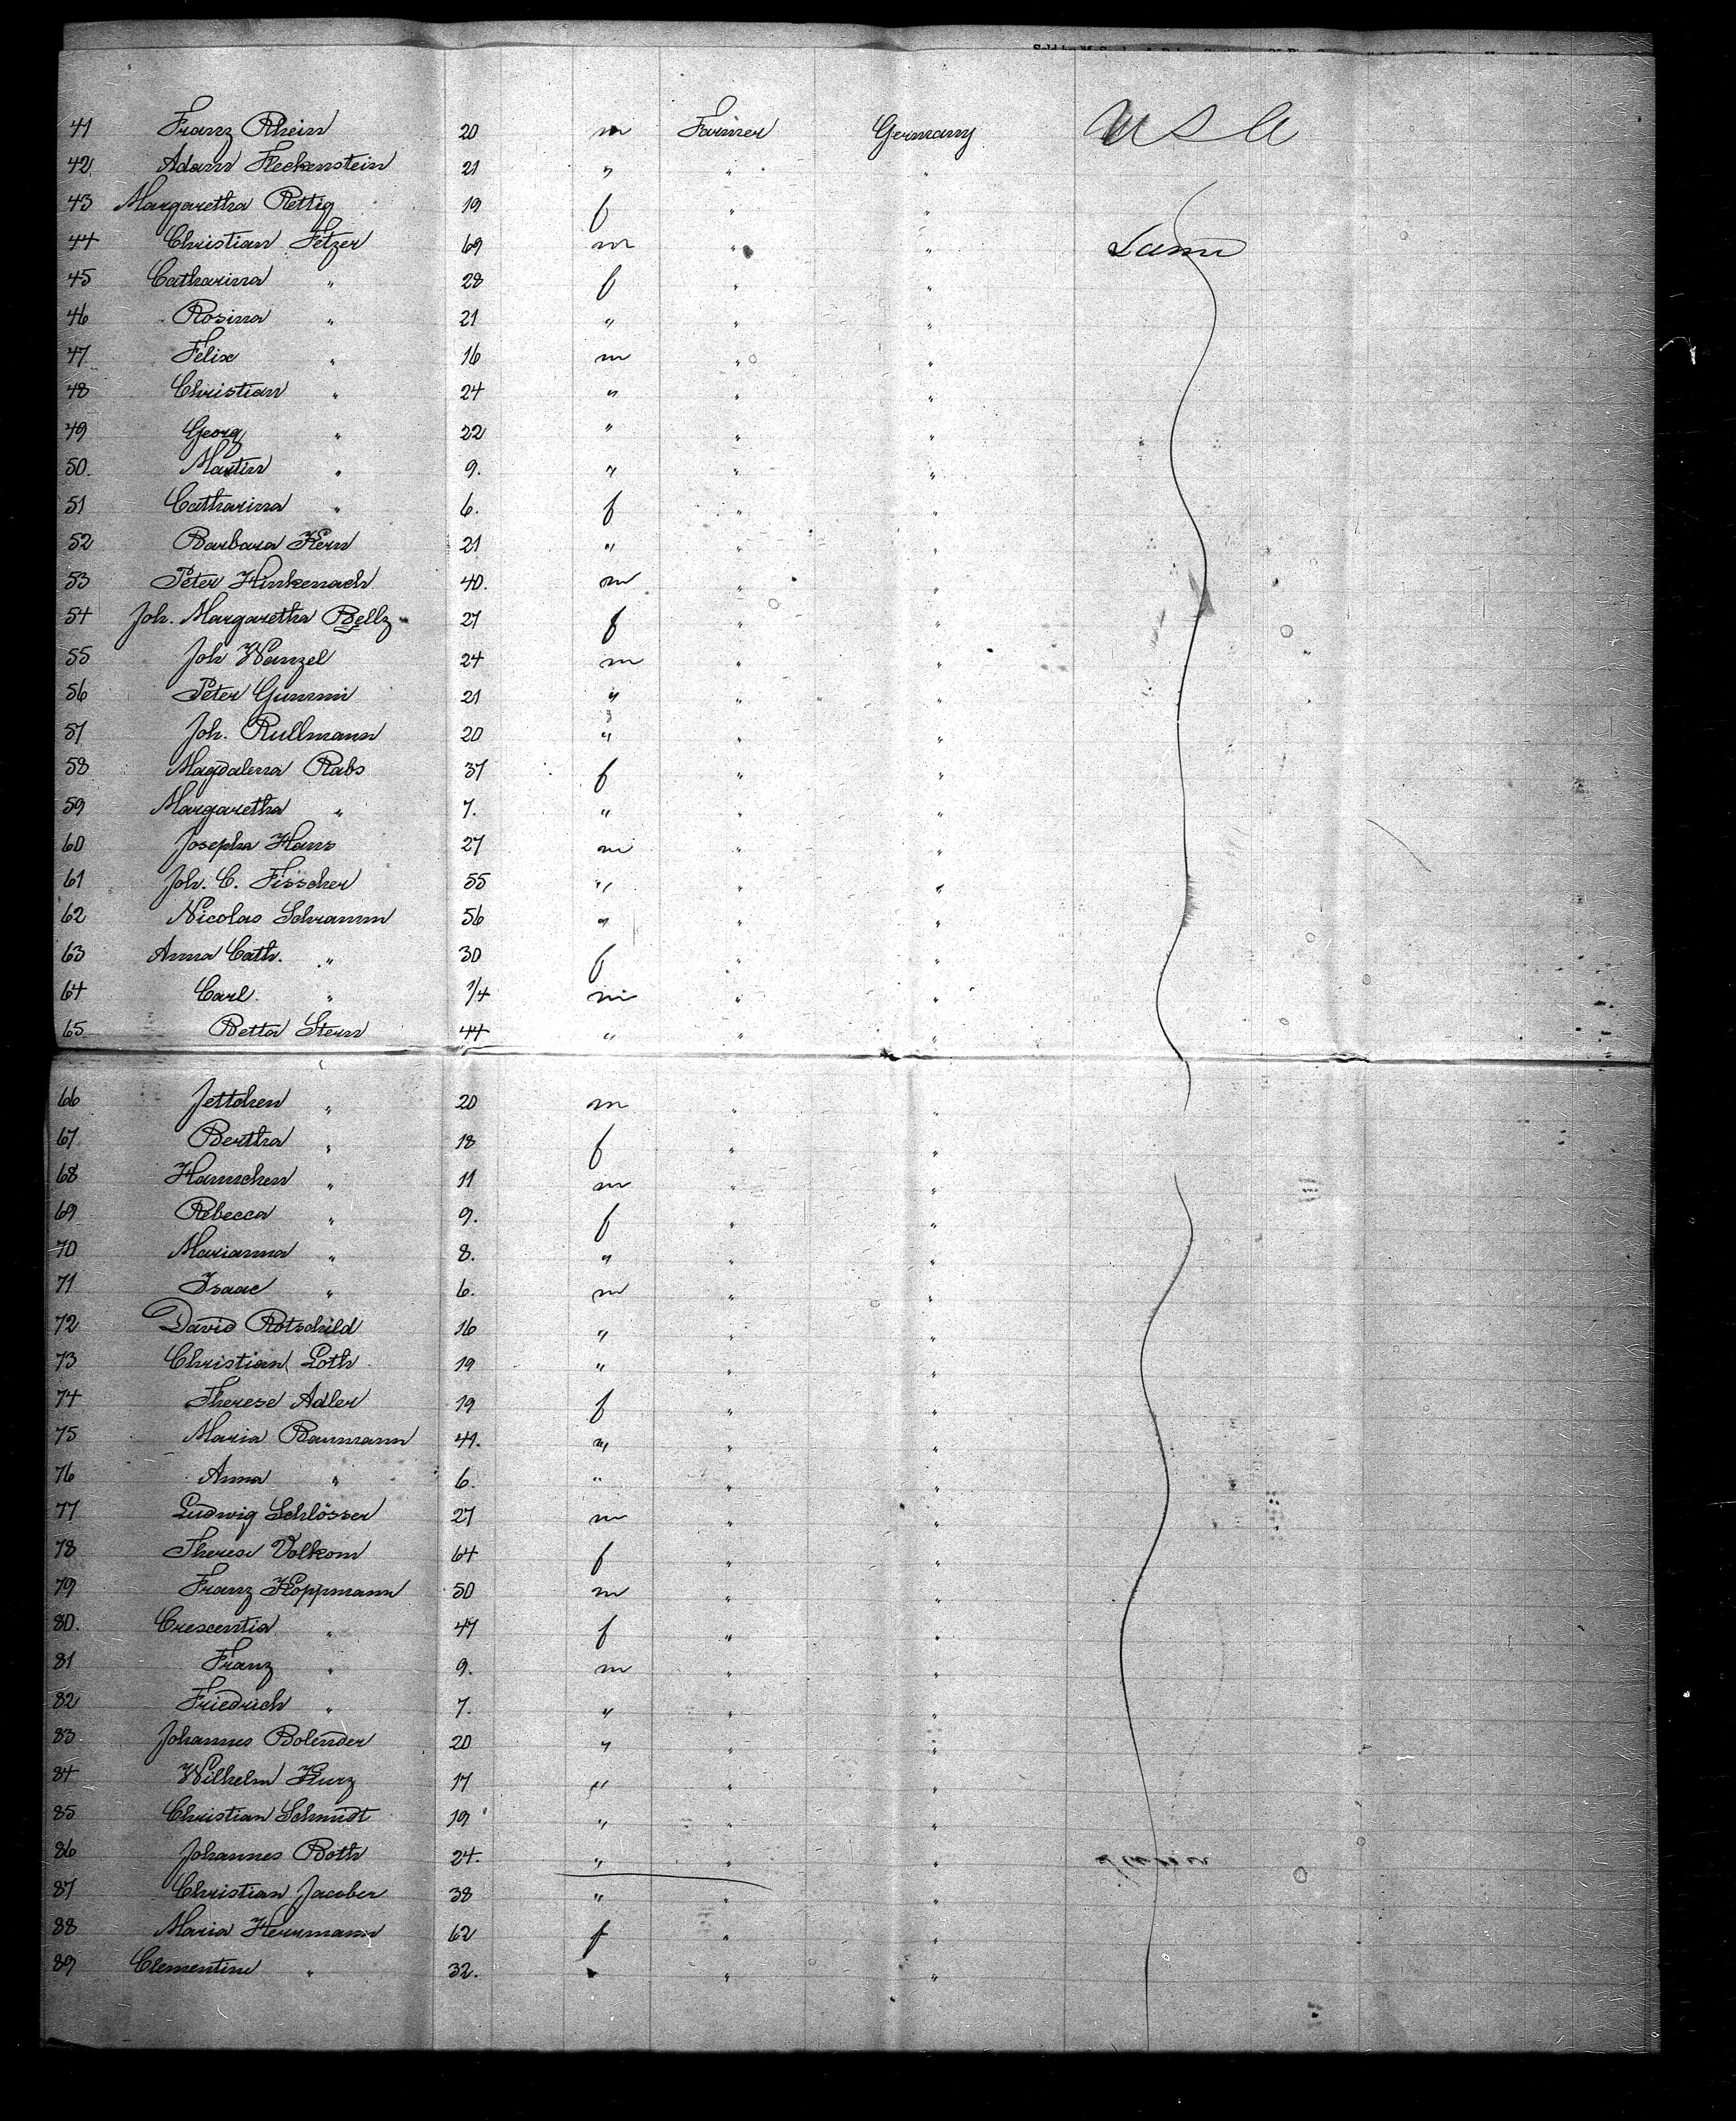 41 Franz Rhein 20 m Farmer Germany U S A
42 Adam Fleckenstein 21 " " "
43 Margaretha Rettig 19 f " "
44 Christian Fetzer 69 m " " Same
45 Catharina " 28 f " "
46 Rosina " 21 " " "
47 Felix " 16 m " "
48 Christian " 24 " " "
49 Georg " 22 " " "
50. Martin " 9. " " "
51 Catharina " 6. f " "
52 Barbara Kern 21 " " "
53 Peter Hinkenach 40. m " "
54 Joh. Margaretha Bellz 27 f " "
55 Joh Wanzel 24 m " "
56 Peter Gummi 21 " " "
57 Joh. Rullmann 20 " " "
58 Magdalena Rabs 37 f " "
59 Margaretha " 7. " " "
60 Josepha Hans 27 m " "
61 Joh. C. Fisscher 55 " " "
62 Nicolas Schramm 56 " " "
63 Anna Cath. " 30 f " "
64 Carl. " 1/4 m " "
65 Betta Stern 44 " " "
66 Jettchen " 20 m " "
67 Bertha " 18 f " "
68 Hannchen " 11 m " "
69 Rebecca " 9. f " "
70 Marianna " 8. " " "
71 Isaac " 6. m " "
72 David Rotschild 16 " " "
73 Christian Loth 19 " " "
74 Therese Adler 19 f " "
75 Maria Baumann 41. " " "
76 Anna " 6. " " "
77 Ludwig Schlösser 27 m " "
78 Therese Volkom 64 f " "
79 Franz Koppmann 50 m " "
80. Crescentia " 47 f " "
81 Franz " 9. m " "
82 Friedrich " 7. " " "
83 Johannes Bolender 20 " " "
84 Wilhelm Kurz 17 " " "
85 Christian Schmidt 19 " " "
86 Johannes Both 24. " " "
87 Christian Jacober 38 " " "
88 Maria Herrmann 62 f " "
89 Clementine " 32. " "